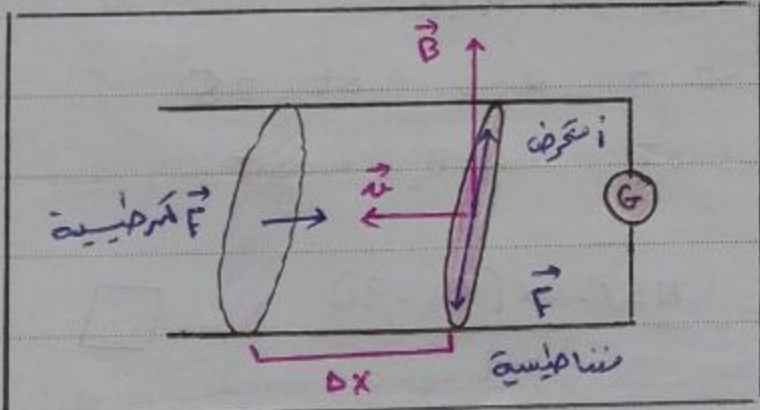 B
أ متحرض
v
G
F كهرطيسية
F
مغناطيسية
Δx